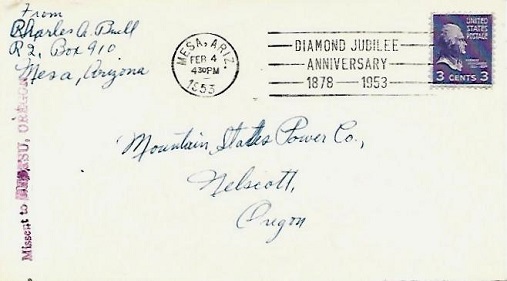 From
Charles A. Buell
R2, Box 910
Mesa, Arizona
MESA, ARIZ.
FEB 4
430PM
1953
DIAMOND JUBILEE
ANNIVERSARY
1878 1953
UNITED
STATES
POSTAGE
3 CENTS 3
Mountain States Power Co.,
Nelscott,
Oregon
Missent to OREGON